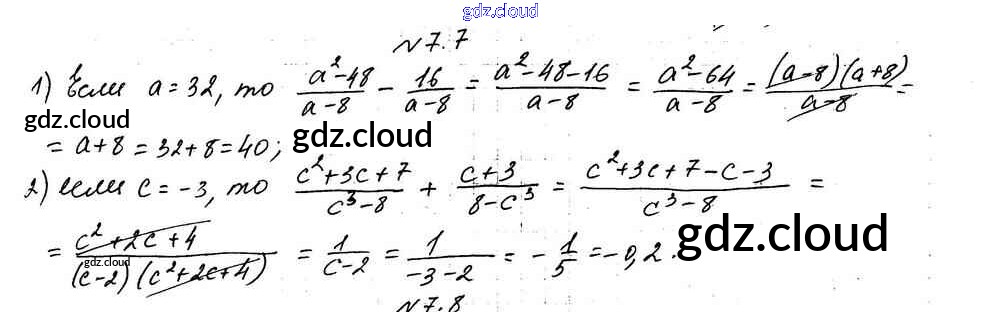 gdz.cloud
N 7.7
1) Если a = 32, то (a² - 48)/(a - 8) - 16/(a - 8) = (a² - 48 - 16)/(a - 8) = (a² - 64)/(a - 8) = (a - 8)(a + 8)/(a - 8) =
gdz.cloud gdz.cloud
= a + 8 = 32 + 8 = 40;
2) если c = -3, то (c² + 3c + 7)/(c³ - 8) + (c + 3)/(8 - c³) = (c² + 3c + 7 - c - 3)/(c³ - 8) =
gdz.cloud
= (c² + 2c + 4)/((c - 2)(c² + 2c + 4)) = 1/(c - 2) = 1/(-3 - 2) = -1/5 = -0,2.
gdz.cloud
N 7.8